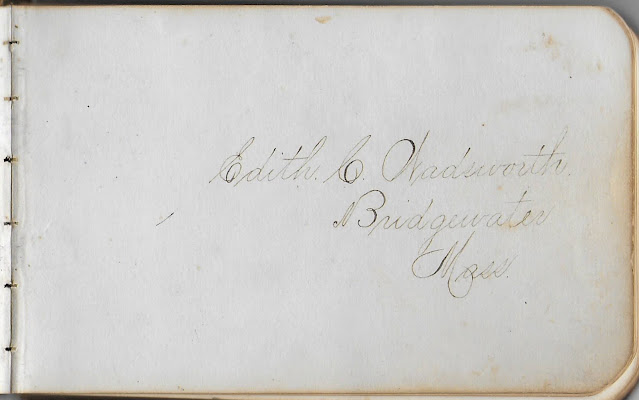 Edith. C. Wadsworth.
Bridgewater
Mass.